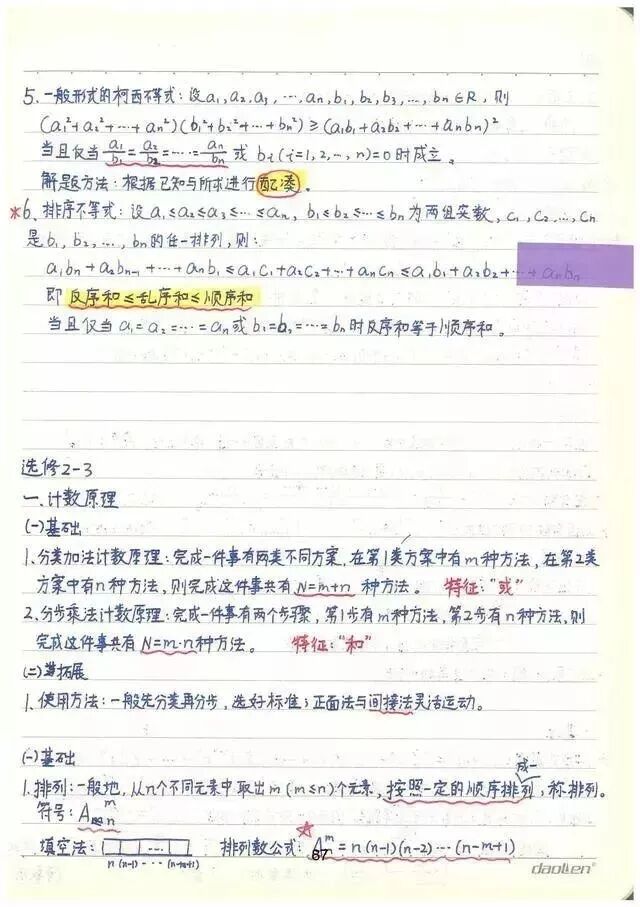 5、一般形式的柯西不等式：设a₁,a₂,a₃,…,aₙ,b₁,b₂,b₃,…,bₙ∈R，则
(a₁²+a₂²+…+aₙ²)(b₁²+b₂²+…+bₙ²)≥(a₁b₁+a₂b₂+…+aₙbₙ)²
当且仅当a₁/b₁=a₂/b₂=……=aₙ/bₙ或bᵢ(i=1,2,…,n)=0时成立。
解题方法：根据已知与所求进行配凑。
*6、排序不等式：设a₁≤a₂≤a₃≤…≤aₙ，b₁≤b₂≤…≤bₙ为两组实数，c₁,c₂…,cₙ
是b₁,b₂,…,bₙ的任一排列，则：
a₁bₙ+a₂bₙ₋₁+…+aₙb₁≤a₁c₁+a₂c₂+…+aₙcₙ≤a₁b₁+a₂b₂+…+aₙbₙ
即反序和≤乱序和≤顺序和
当且仅当a₁=a₂=…=aₙ或b₁=b₂=…=bₙ时反序和等于顺序和。
选修2-3
一、计数原理
(一)基础
1、分类加法计数原理：完成一件事有两类不同方案，在第1类方案中有m种方法，在第2类
方案中有n种方法，则完成这件事共有N=m+n种方法。 特征："或"
2、分步乘法计数原理：完成一件事有两个步骤，第1步有m种方法，第2步有n种方法，则
完成这件事共有N=m·n种方法。 特征："和"
(二)拓展
1、使用方法：一般先分类再分步，选好标准；正面法与间接法灵活运动。
(一)基础
成一
1、排列：一般地，从n个不同元素中取出m(m≤n)个元素，按照一定的顺序排列，称排列。
符号：Aₙᵐ
填空法： … 排列数公式：Aᵐ=n(n-1)(n-2)…(n-m+1)
n (n-1) --- (n-m+1)
67
daolien®